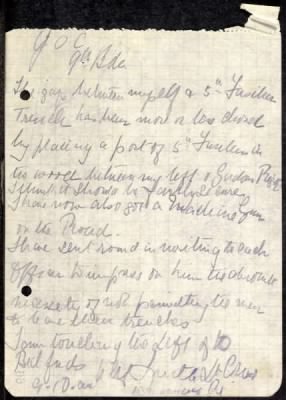 G O C
9th Bde
The gap between myself & 5th Fusiliers
trench has been more or less closed
by placing a post of 5th Fusiliers in
the wood between my left &
I think it should be fairly secure
I have now also got a machine Gun
on the Road.
I have sent round in writing to each
Officer to impress on him the absolute
necessity of not permitting the men
to leave their trenches
I am touching the left of the
Bedfords
Lt Col